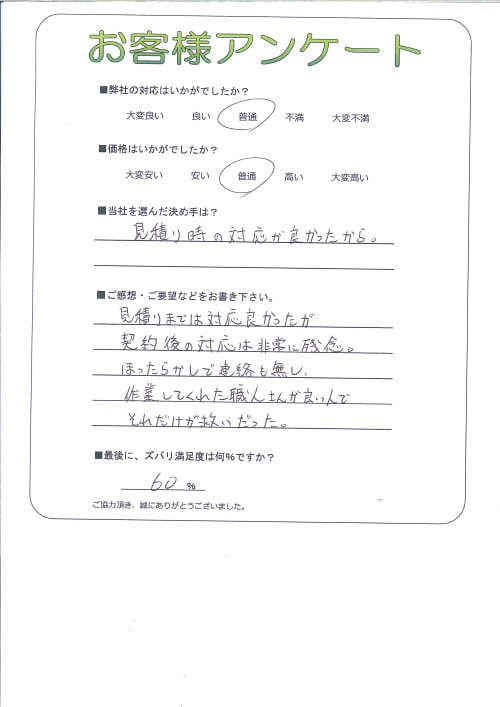 お客様アンケート
■弊社の対応はいかがでしたか？
大変良い 良い 普通 不満 大変不満
■価格はいかがでしたか？
大変安い 安い 普通 高い 大変高い
■当社を選んだ決め手は？
見積り時の対応が良かったから。
■ご感想・ご要望などをお書き下さい。
見積りまでは対応良かったが
契約後の対応は非常に残念。
ほったらかしで連絡も無し、
作業してくれた職人さんが良い人で
それだけが救いだった。
■最後に、ズバリ満足度は何％ですか？
60 %
ご協力頂き、誠にありがとうございました。